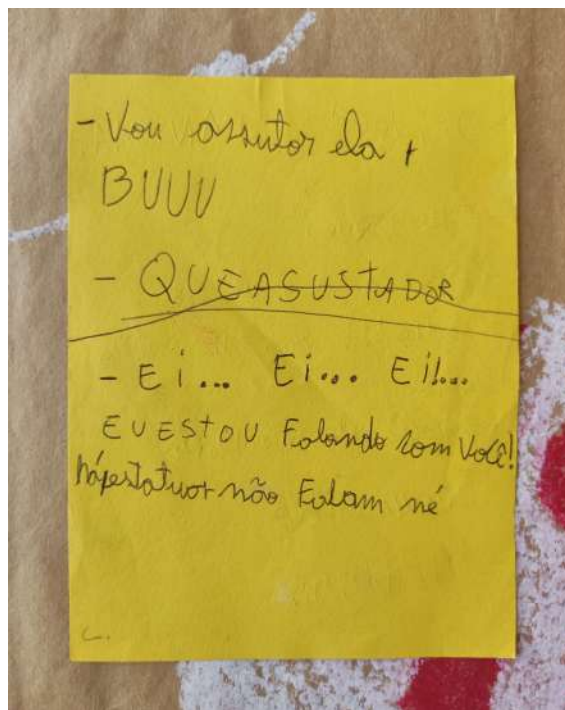 - Vou assutar ela +
BUUU
- QUEASUSTADOR
- Ei... Ei... Ei!...
EU ESTOU Falando com Você!
não Falam né